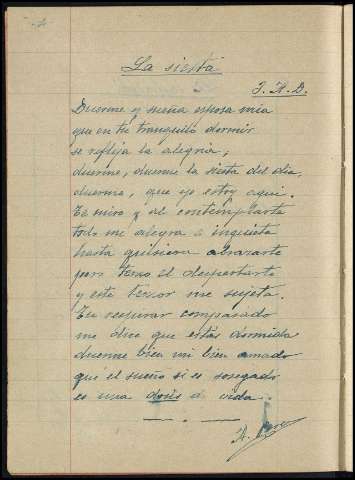 La siesta
J. A. D.
Duerme y sueña esposa mia
que en tu tranquilo dormir
se refleja la alegria,
duerme, duerme la siesta del dia,
duerme, que yo estoy aqui.
Te miro y al contemplarte
todo me alegra é inquieta
hasta quisiera abrazarte
pero temo el despertarte
y este temor me sujeta.
Tu respirar compasado
me dice que estás dormida
duerme bien mi bien amado
que el sueño si es sosegado
es una dosis de vida.
A.